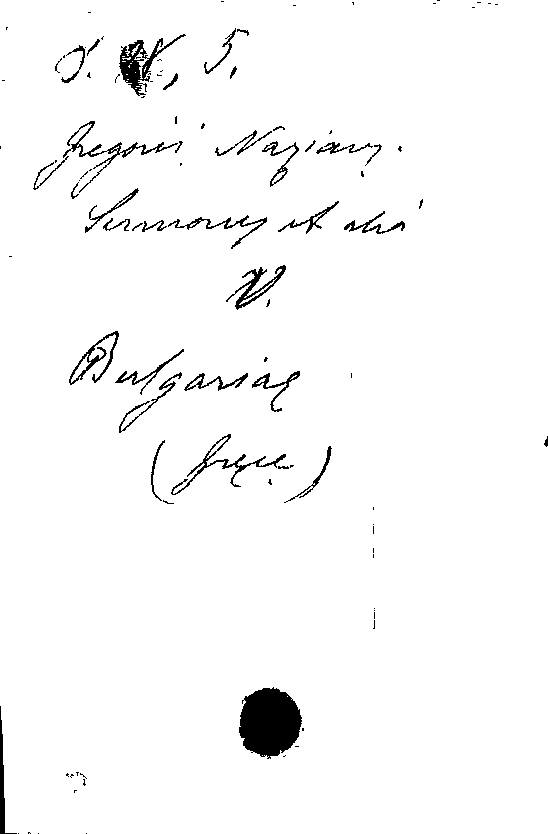 5.
Gregorii Nazianz.
Sermones et alia
V.
Bulgariae
(Grece)